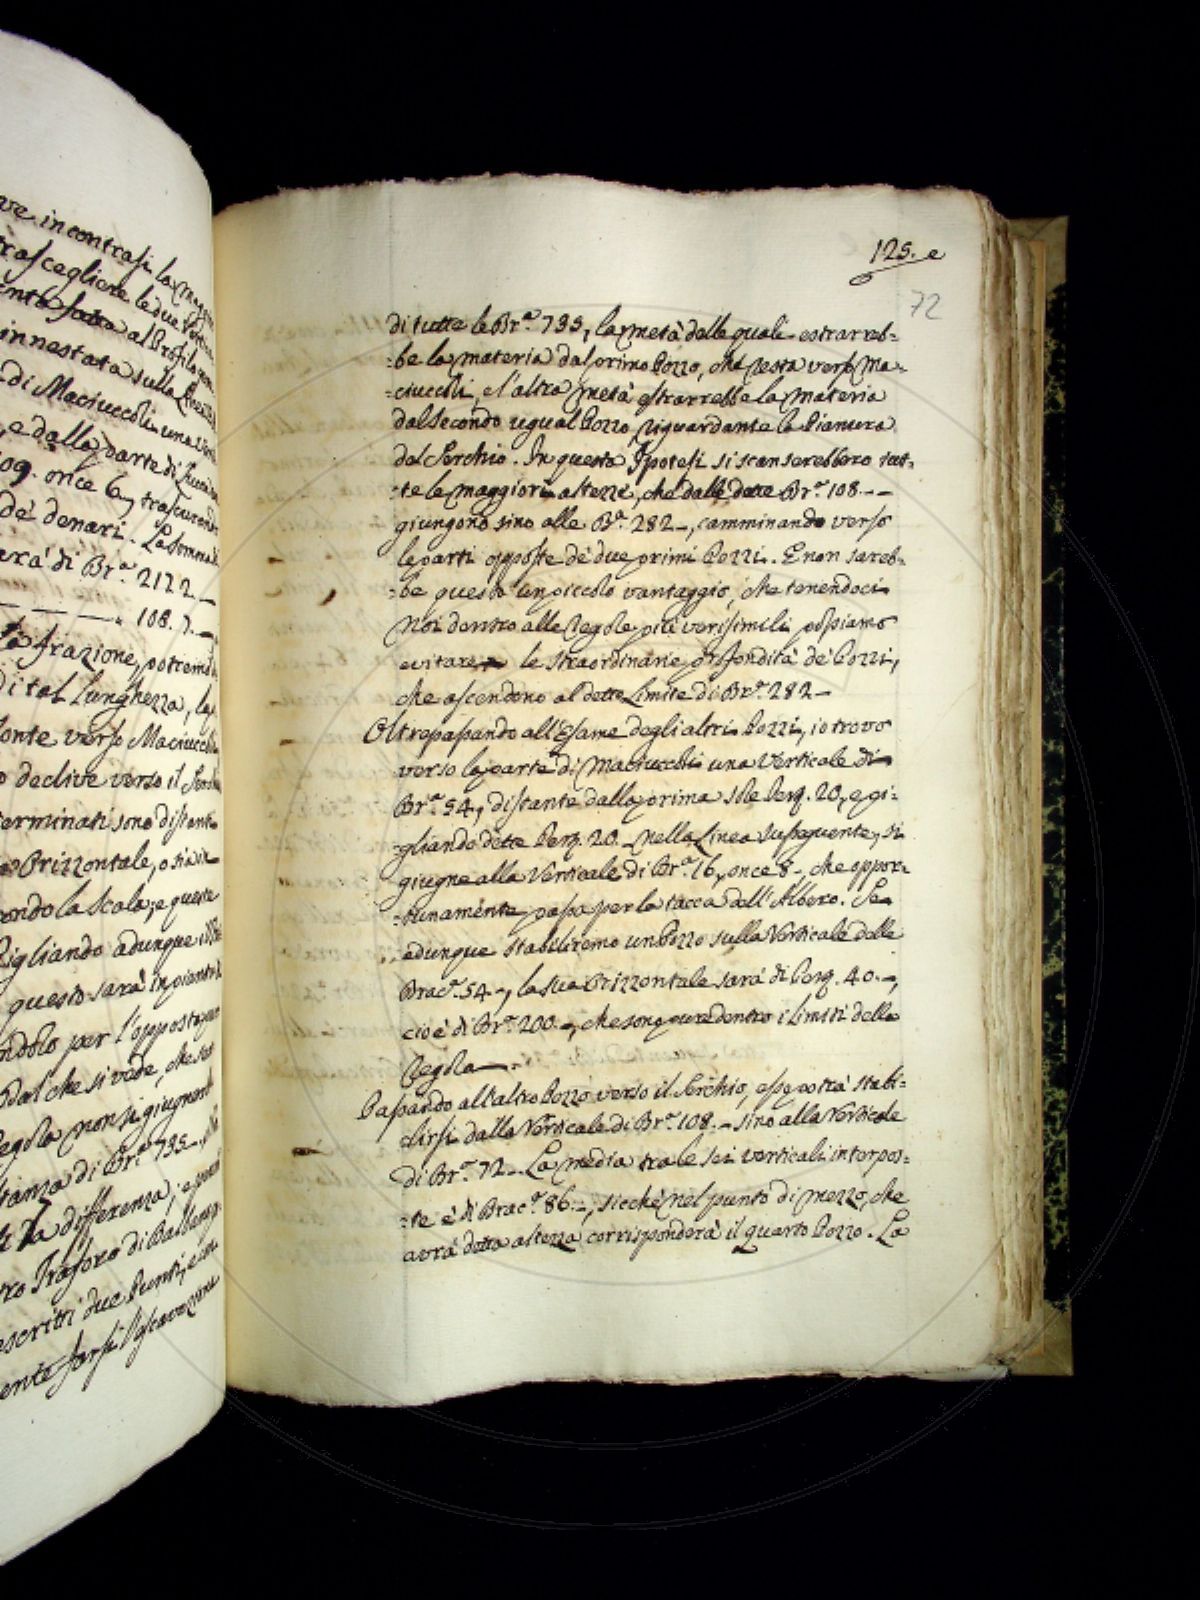 ve incontrasi la maggio
trascegliere le due Vertica
ento fatta al Profilo gen
innestata sulla
di Maciuccoli una verti
, e dalla parte di
109. once 6, trascurando
de' denari. La somma d
ara' di Br.ª 2122.
108. 7.
frazione, potremo
di tal Lunghezza, la
onte verso Maciuccoli
o declive verso il Serchio
erminati sono distanti
Orizzontale, o sia in
condo la Scala; e queste
Pigliando adunque
questo sarà in pianta
ndolo per l'opposta par
dal che si vede, che
egola non si giugne
stanza di Br.ª 735.
la differenza; e
tro Traforo di Balbano
escritti due Punti, e
ente farsi l'escavazione
125. e
72
di tutte le Br.ª 735, la metà delle quali estrarreb=
=be la materia dal primo Pozzo, che resta verso Ma=
=ciuccoli, e l'altra metà estrarrebbe la materia
dal Secondo ugual Pozzo riguardante la Pianura
del Serchio. In questa Ipotesi si scanserebbero tut=
=te le maggiori altezze, che dalle dette Br.ª 108.--
giungono sino alle Br.ª 282-, camminando verso
le parti opposte de' due primi Pozzi. E non sareb=
=be questo un piccolo vantaggio, che tenendoci
Noi dentro alle regole più verisimili possiamo
evitare le straordinarie profondità de' Pozzi,
che ascendono al dette Limite di Br.ª 282-
Oltrepassando all'Esame degli altri Pozzi, io trovo
verso la parte di Maciuccoli una Verticale di
Br.ª 54, distante dalla prima sole Perq. 20, e pi=
=gliando dette Perq. 20. nella Linea susseguente, si
giugne alla Verticale di Br.ª 16, once 8-, che oppor=
=tunamente passa per la tacca dell'Albero. Se
adunque stabiliremo un Pozzo sulla Verticale delle
Brac.ª 54-, la sua Orizzontale sarà di Perq. 40.-,
cioè di Br.ª 200.-, che sono pure dentro i limiti della
Regola
Passando all'altro Pozzo verso il Serchio, esso potrà stabi=
=lirsi dalla Verticale di Br.ª 108.- sino alla Verticale
di Br.ª 72-. La media tra le sei verticali interpos=
=te è di Brac.ª 86.-, sicchè nel punto di mezzo, che
avrà detta altezza corrisponderà il quarto Pozzo. La